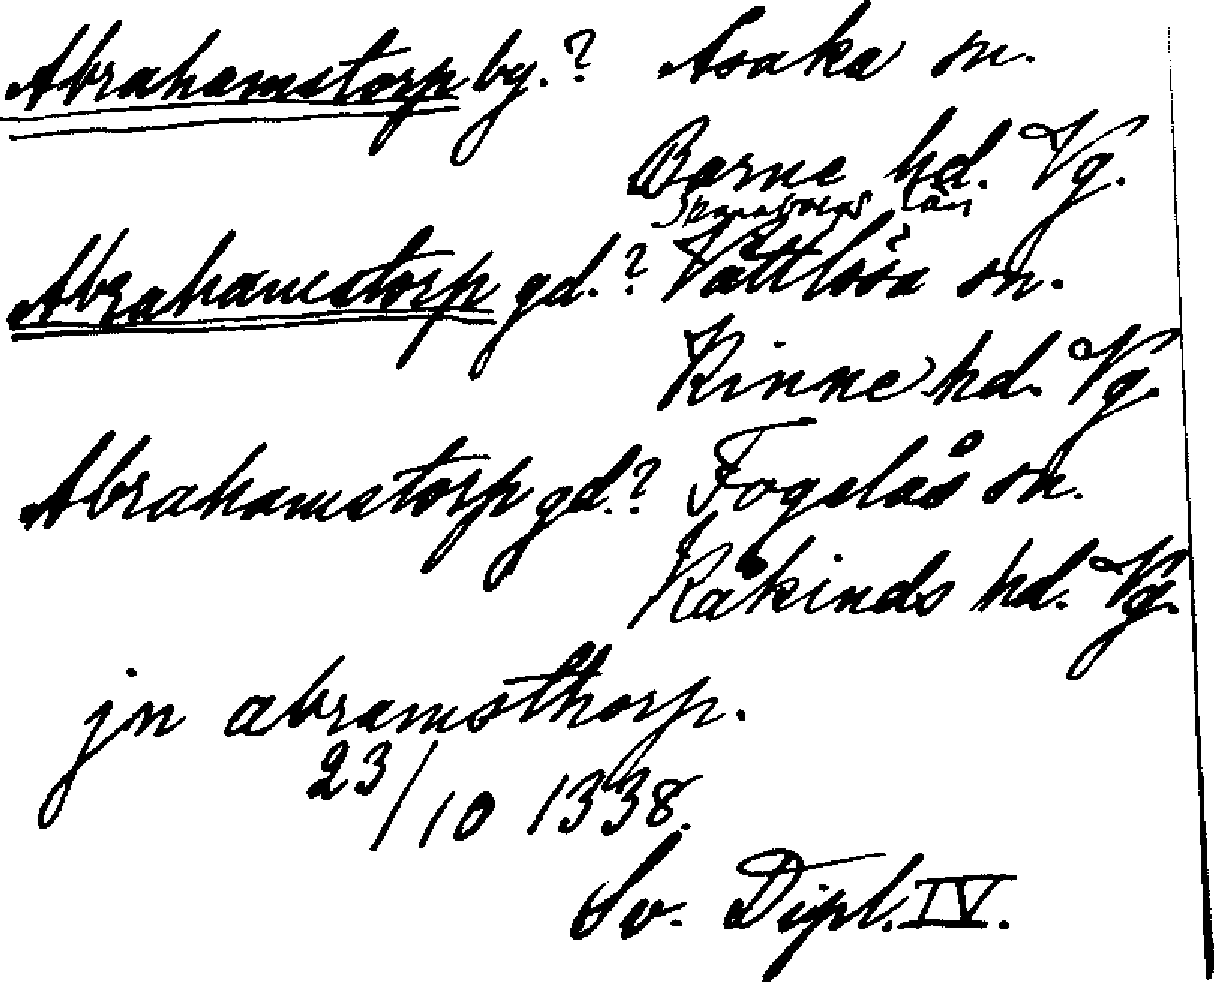 Abrahamstorp by.? Asaka sn.
Barne hd. Vg.
Skaraborgs län
Abrahamstorp gd.? Vättlösa sn.
Kinne hd. Vg.
Abrahamstorp gd.? Fogelås sn.
Kåkinds hd. Vg.
jn abramsthorp.
23/10 1338.
Sv. Dipl. IV.